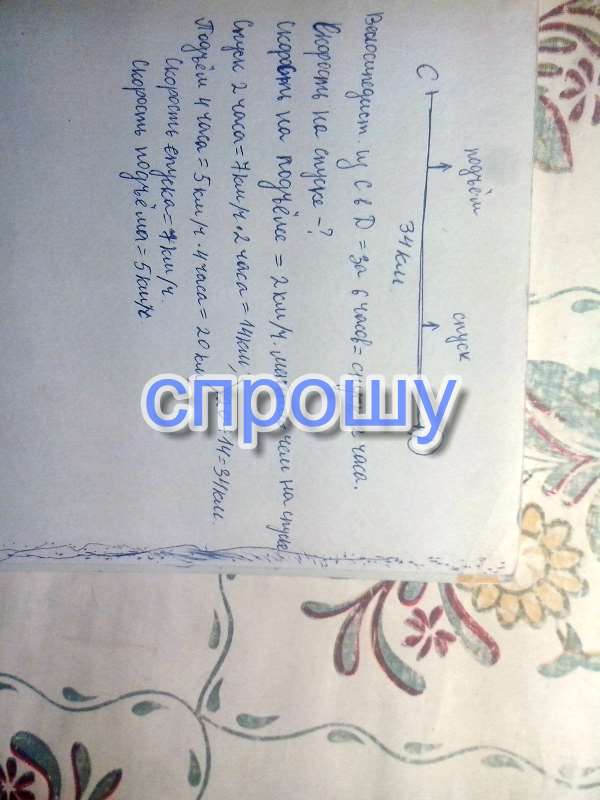 C
D
подъём
спуск
34 км
Велосипедист. из C в D = за 6 часов = часа.
Скорость на спуске - ?
Скорость на подъёме = 2 км/ч. чем на спуске
Спуск 2 часа = 7 км/ч · 2 часа = 14 км,
Подъём 4 часа = 5 км/ч · 4 часа = 20 км 14 = 34 км.
Скорость спуска = 7 км/ч.
Скорость подъёма = 5 км/ч
спрошу